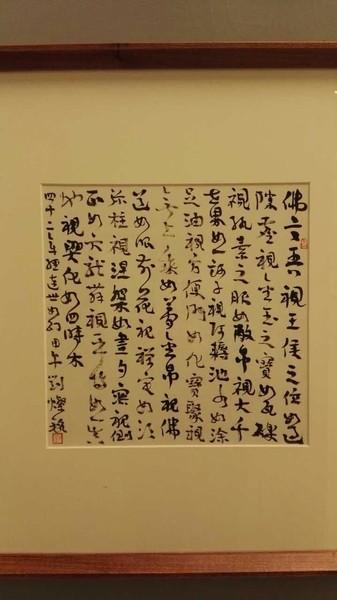 佛言吾視王侯之位如過
隙塵視金玉之寶如瓦礫
視紈素之服如敝帛視大千
世界如一訶子視阿耨池水如塗
足油視方便門如化寶聚視
無上乘如夢金帛視佛
道如眼前花視禪定如須
彌柱視涅槃如晝夕寤視倒
正如六龍舞視平等如一真
地視興化如四時木
四十二章經達世如幻甲午劉燦銘